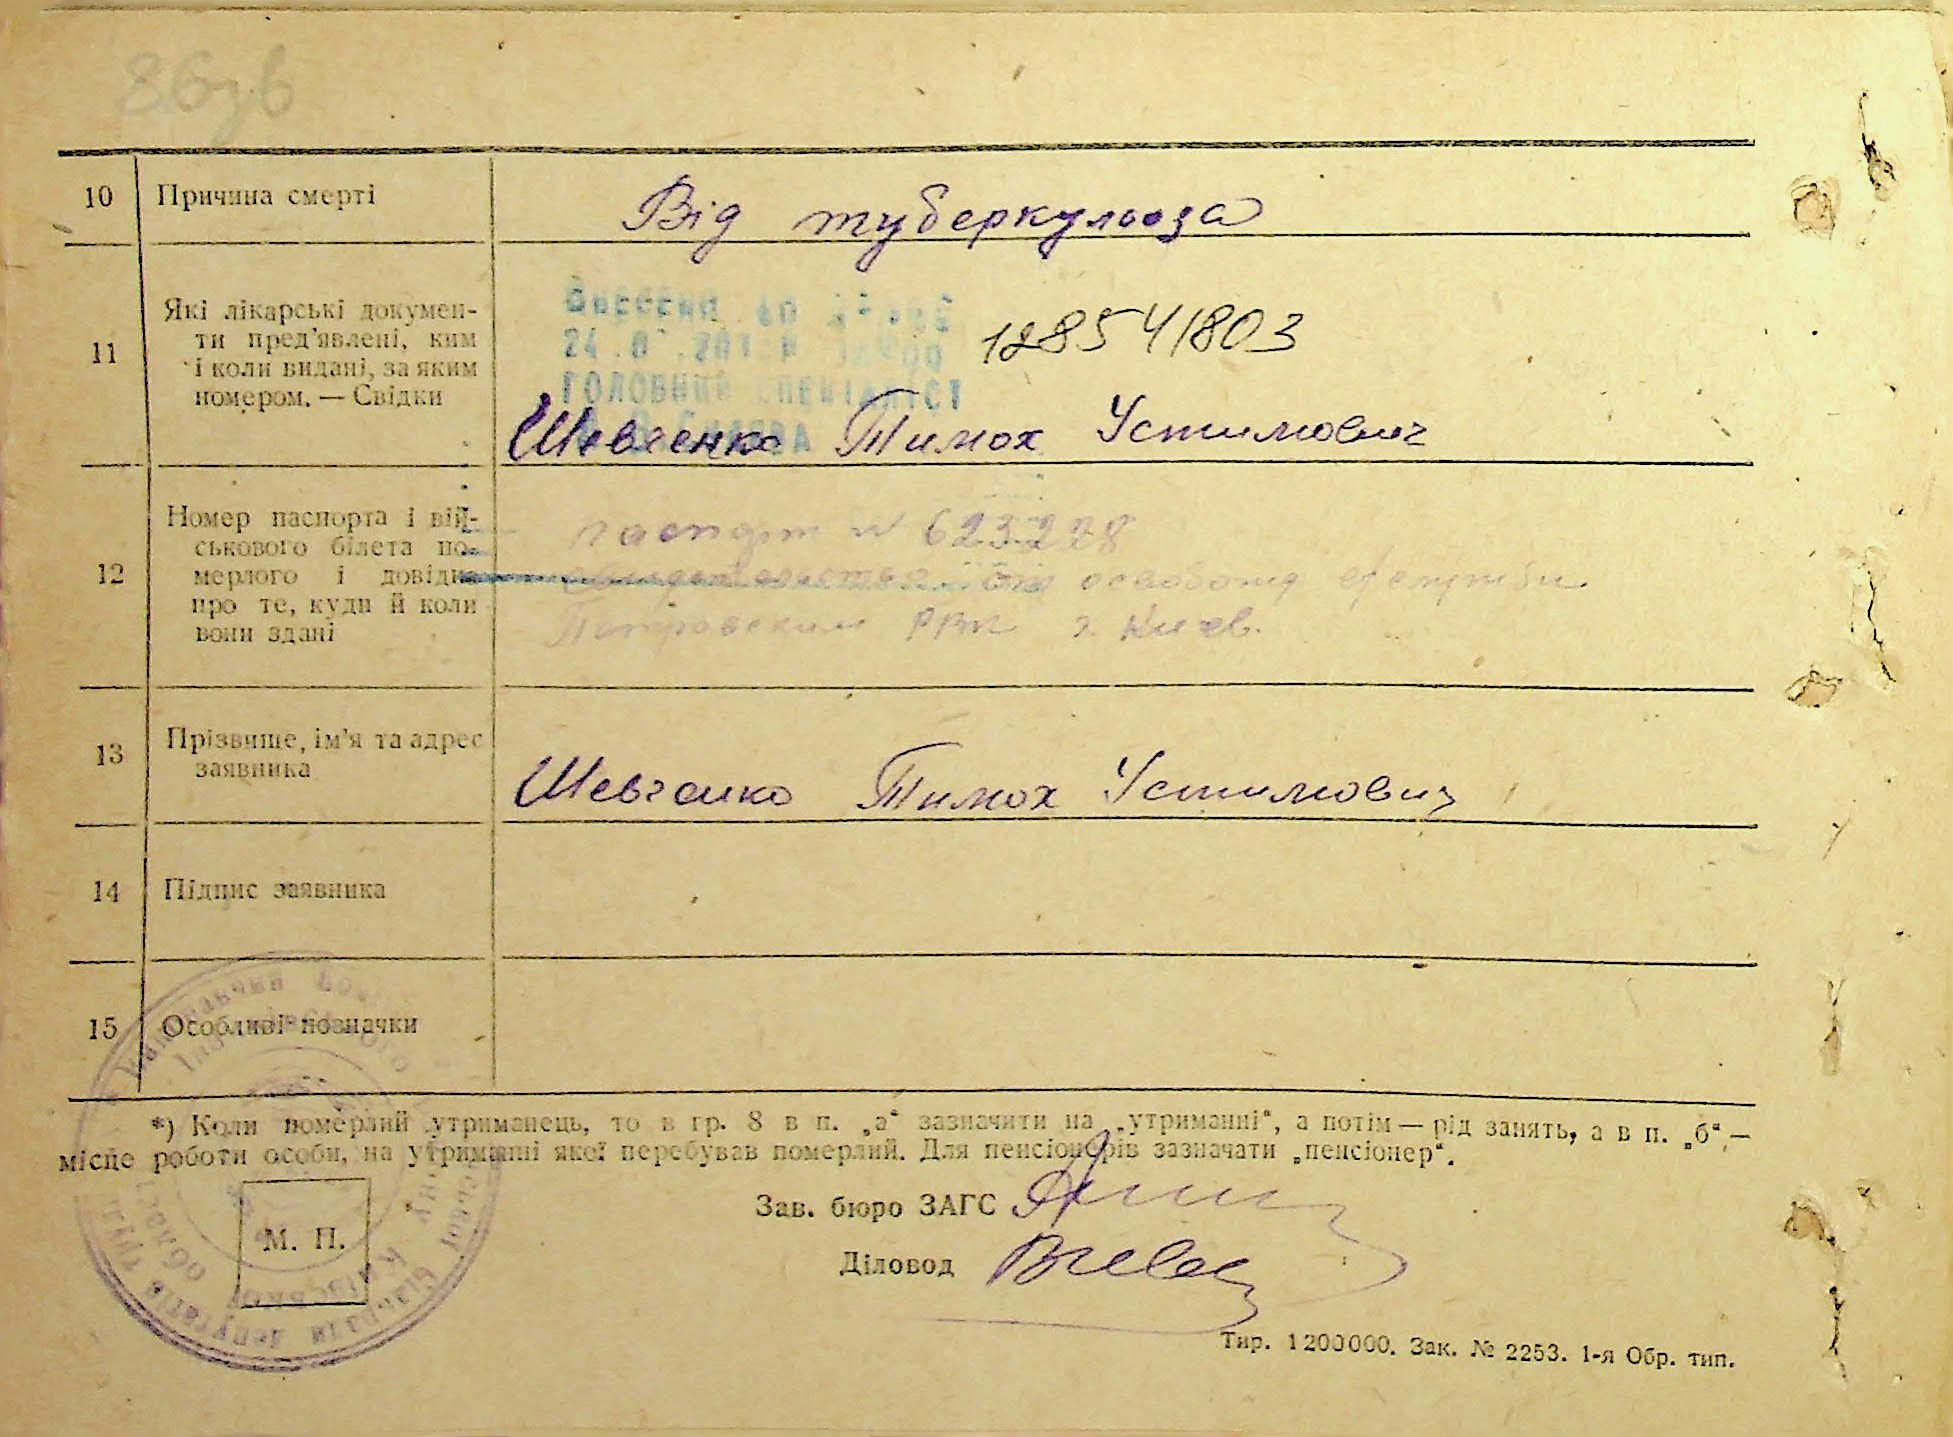 10 Причина смерті Від туберкульоза
11 Які лікарські докумен-
ти пред'явлені, ким
і коли видані, за яким
номером. — Свідки
24.0 .201
ГОЛОВНИЙ СПЕЦІАЛІСТ
128541803
Шевченко Тимох Устимович
12 Номер паспорта і вій-
ськового білета по-
мерлого і довідка
про те, куди й коли
вони здані
паспорт № 623228
освобожд
Петровским РВК г. Киев.
13 Прізвище, ім'я та адрес
заявника
Шевченко Тимох Устимович
14 Підпис заявника
15 Особливі позначки
*) Коли померлий утриманець, то в гр. 8 в п. „а“ зазначити на „утриманні“, а потім — рід занять, а в п. „б“ —
місце роботи особи, на утриманні якої перебував померлий. Для пенсіонерів зазначати „пенсіонер“.
Зав. бюро ЗАГС
Діловод
М. П.
Тир. 1200000. Зак. № 2253. 1-я Обр. тип.